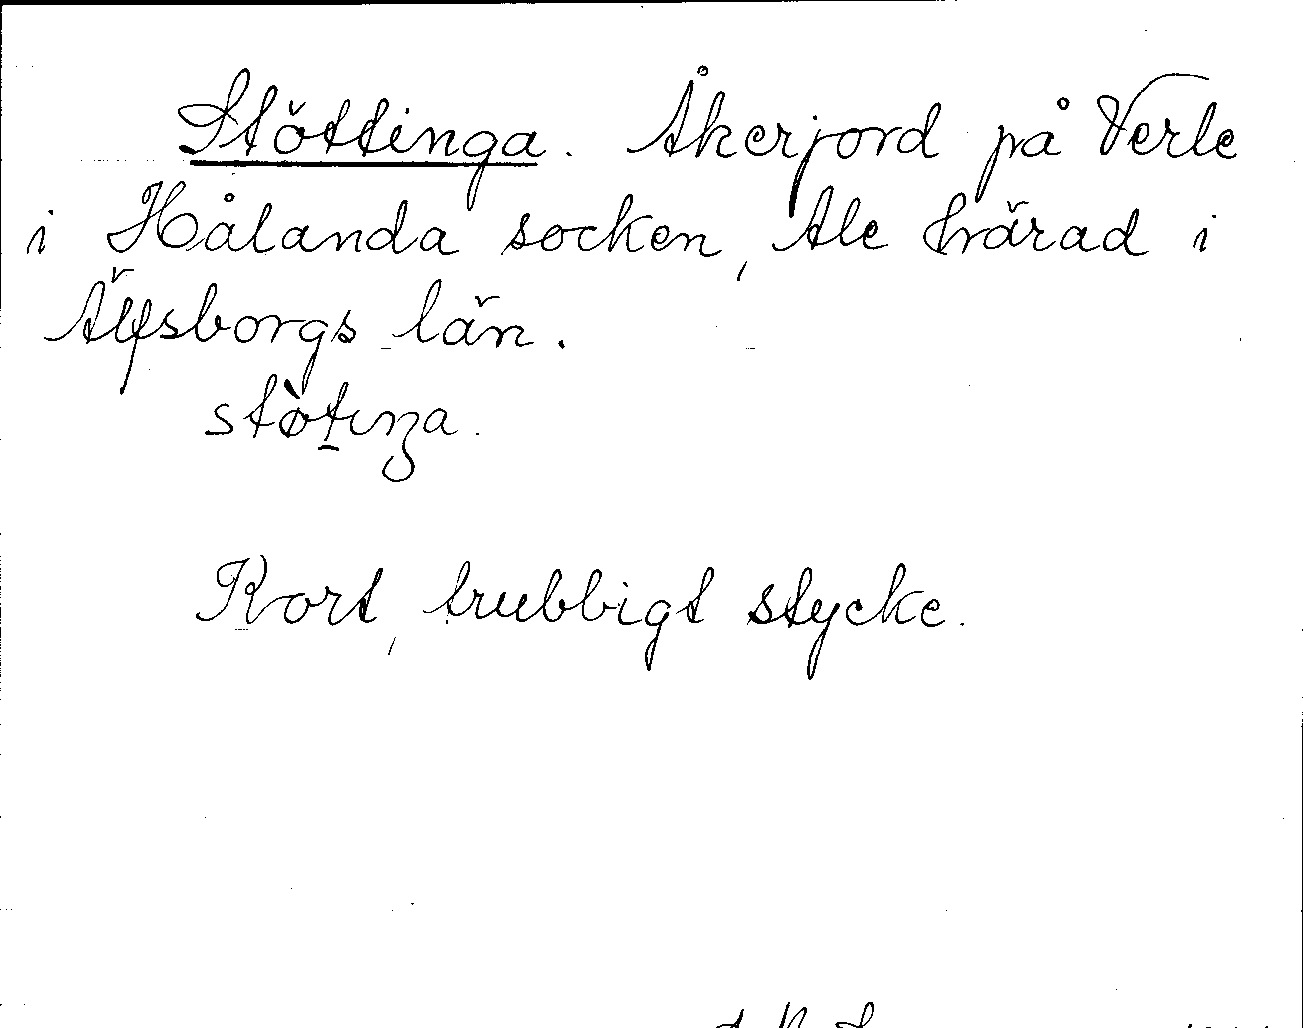 Stöttinga. Åkerjord på Verle
i Hålanda socken, Ale härad i
Älfsborgs län.
stø̀tıŋa.
Kort, trubbigt stycke.